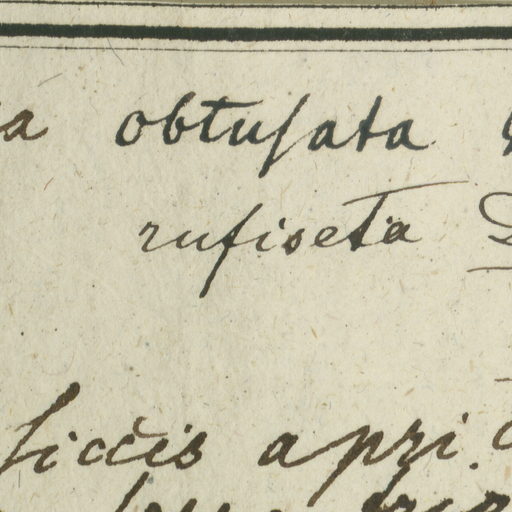 a obtuſata
rufiseta
ſiccis apri